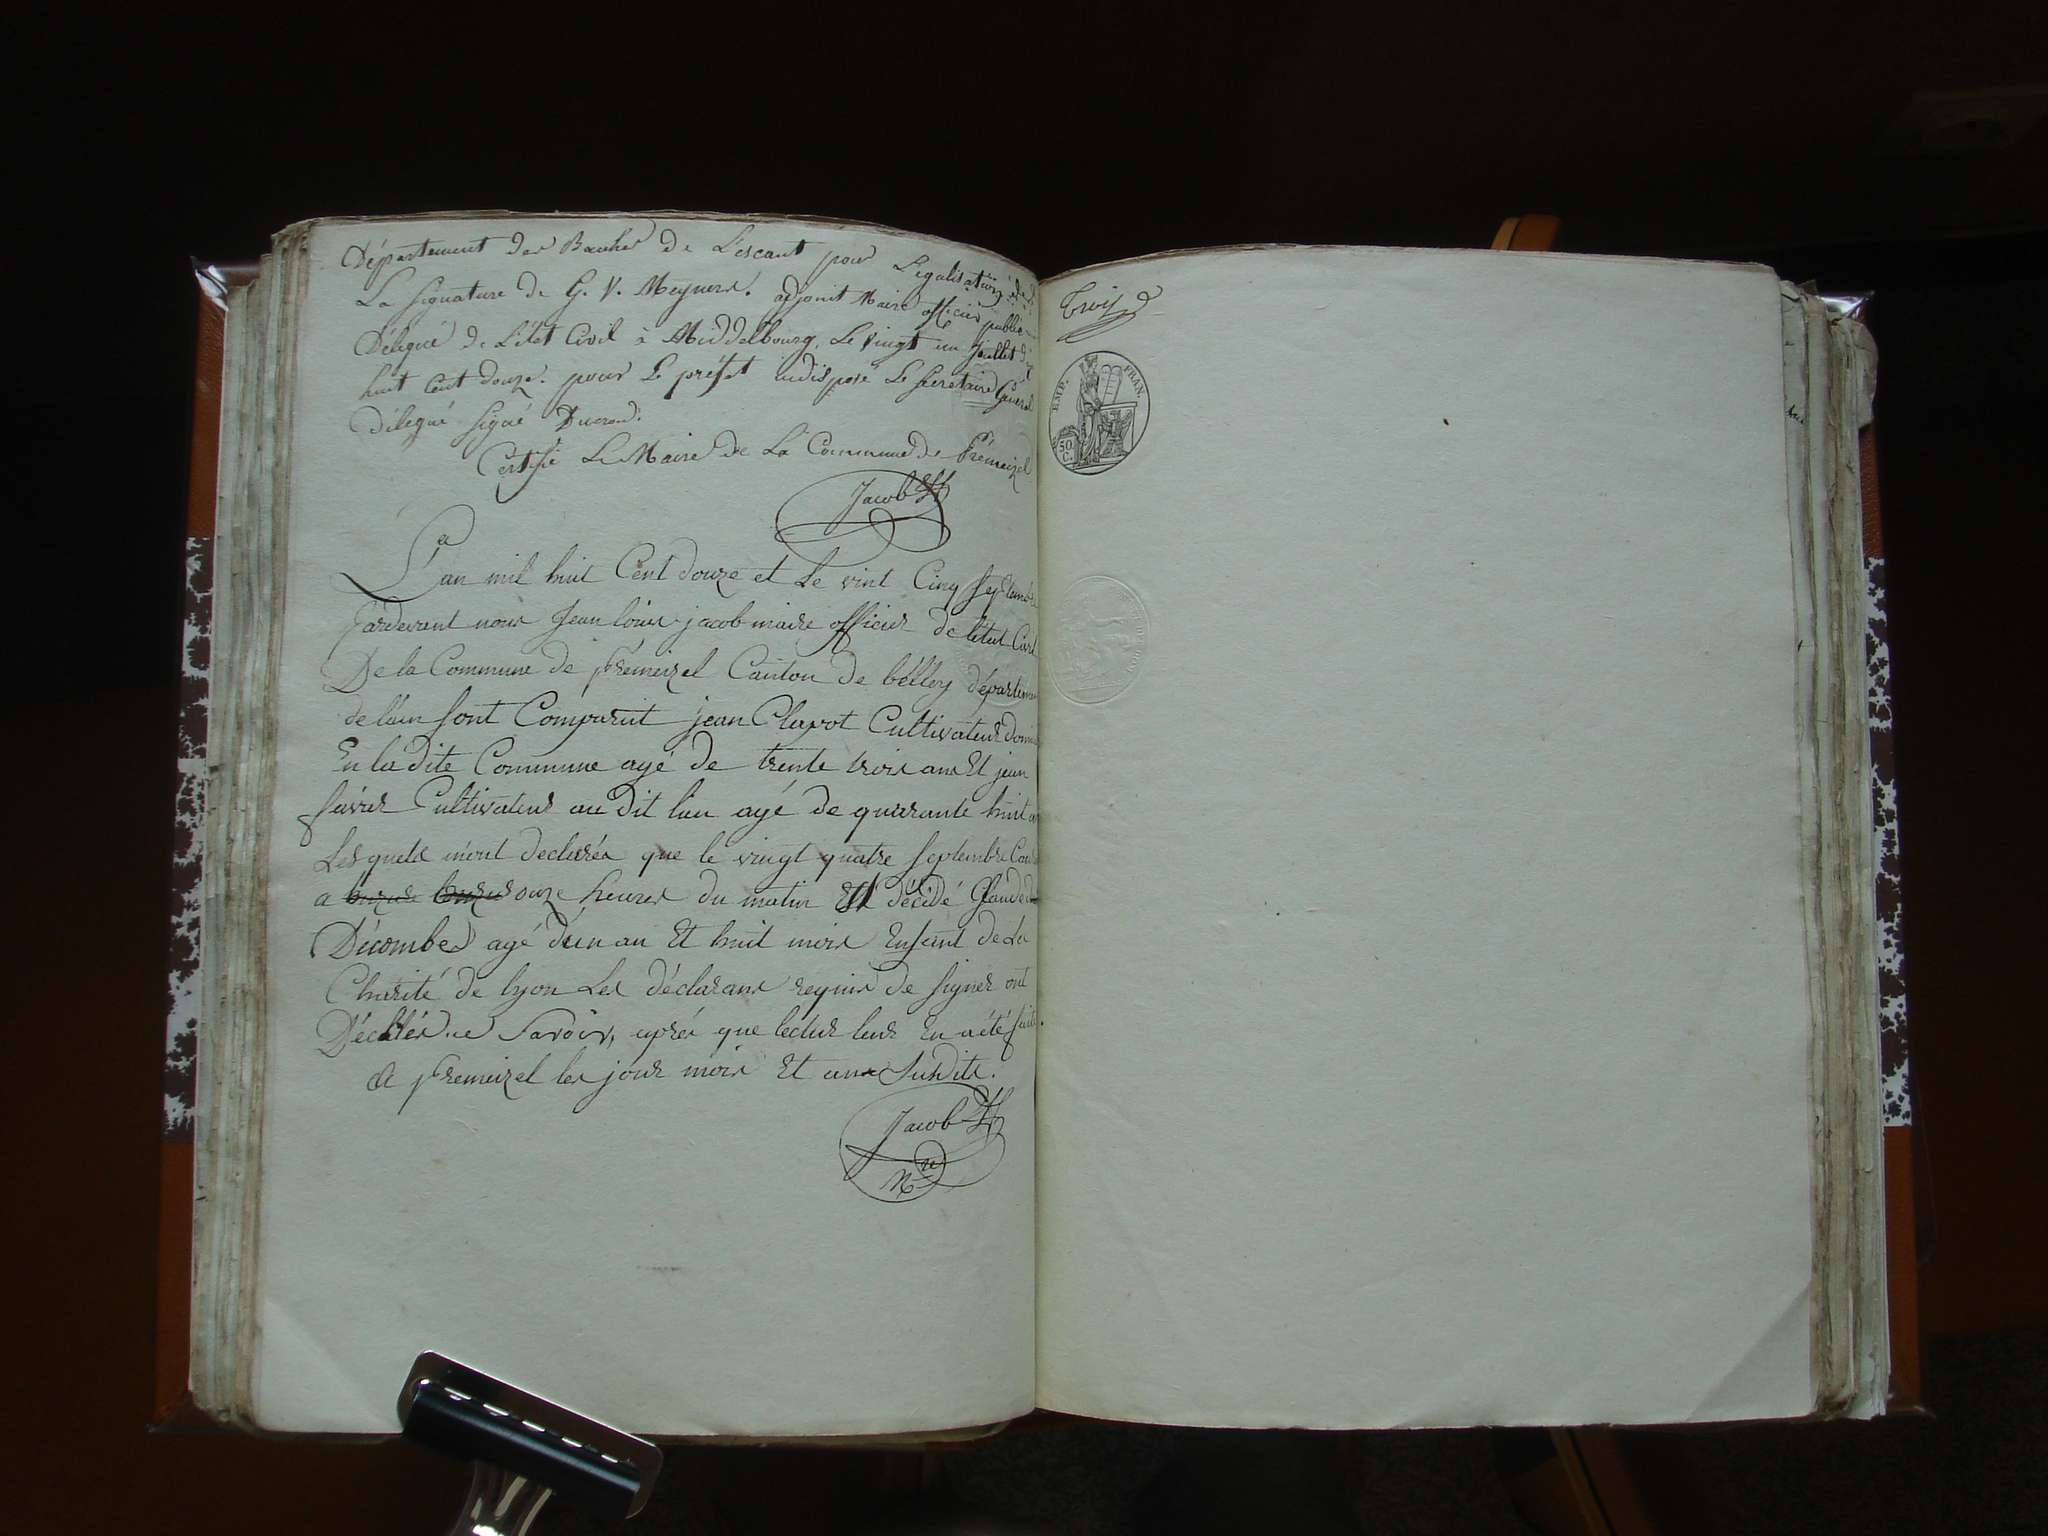 Département des Bouches de L'escaut pour Légalisation de
La signature de G. V. Meyners. adjoint Maire officier public
Délégué de L'état Civil à Middelbourg, Le vingt un Juillet
huit Cent douze. pour Le préfet indisposé Le Secretaire Général
délégué signé
Certifié Le Maire de La Commune de Prémeizel
Jacob
L'an mil huit Cent douze et le vint Cinq Septembre
Pardevant nous Jean louis jacob maire officier de létat Civil
De la Commune de prémeizel Canton de belley départemen
de lain sont Comparut jean Clapot Cultivateur domi
En la dite Commune agé de trente trois ans Et jean
Cultivateur au dit lieu agé de quarante huit an
Lesquels m'ont declarés que le vingt quatre septembre
a onze heures du matin Est décédé Claude
Décombes agé d'un an Et huit mois Enfant de La
Charité de lyon Les déclarans requis de signer ont
Déclarés ne Savoir, après que lecture leur En a été faite.
A premeizel les jour mois Et an Susdits.
Jacob
Mre
Trois
EMP. FRAN.
50 C.